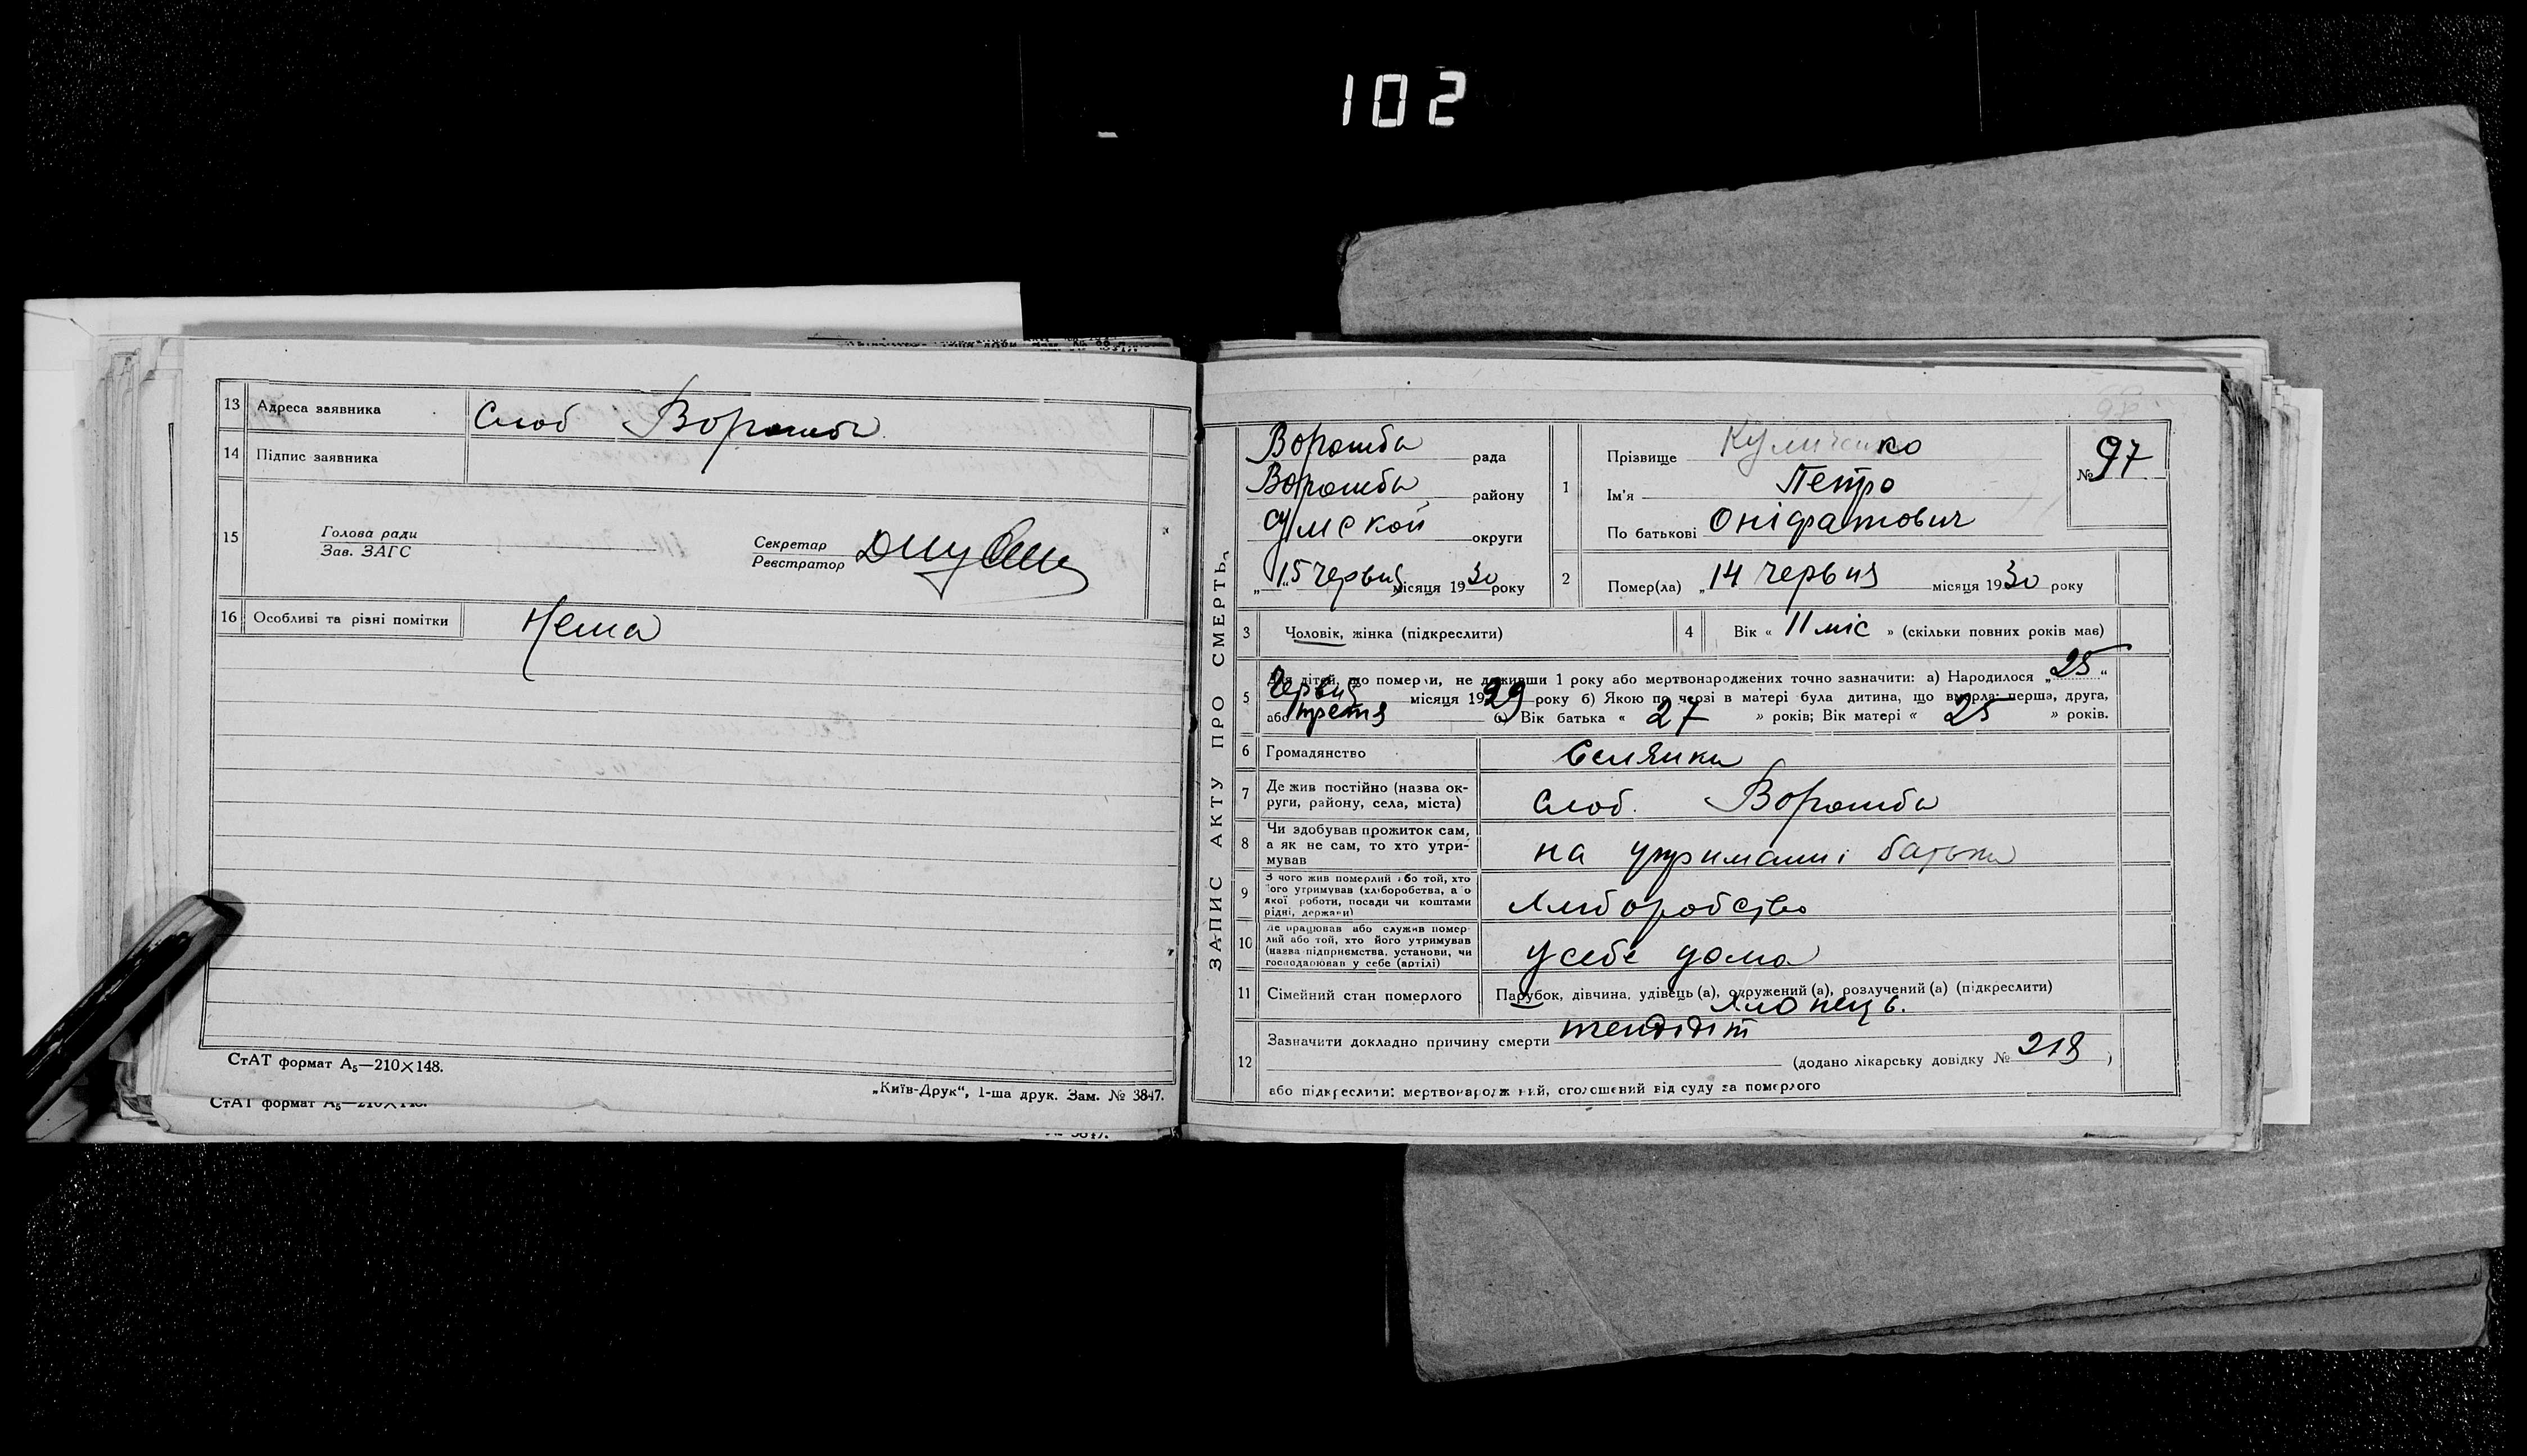 102
13 Адреса заявника Слоб Ворожба
14 Підпис заявника
15 Голова ради
Зав. ЗАГС
Секретар
Реєстратор
16 Особливі та різні помітки Нема
СтАТ формат А₅—210×148.
„Київ-Друк“, 1-ша друк. Зам. № 3847.
СтАТ формат А₅—210×148.
ЗАПИС АКТУ ПРО СМЕРТЬ
Ворожба рада
Ворожба району
Сумской округи
„15 червня місяця 1930 року
1 Прізвище Куличенко
Ім'я Петро
По батькові Оніфатович
№ 97
2 Помер(ла) „14 червня місяця 1930 року
3 Чоловік, жінка (підкреслити)
4 Вік « 11 міс » (скільки повних років має)
5 Для дітей, що померли, не доживши 1 року або мертвонароджених точно зазначити: а) Народилося „25“
червня місяця 1929 року б) Якою по черзі в матері була дитина, що вмерла: перша, друга,
або третя в) Вік батька « 27 » років; Вік матері « 25 » років.
6 Громадянство Селянин
7 Де жив постійно (назва ок-
руги, району, села, міста) Слоб. Ворожба
8 Чи здобував прожиток сам,
а як не сам, то хто утри-
мував на утриманні батька
9 З чого жив померлий або той, хто
його утримував (хліборобства, або
якої роботи, посади чи коштами
рідні, держави) Хліборобство
10 Де працював або служив помер-
лий або той, хто його утримував
(назва підприємства, установи, чи
господарював у себе (артілі) у себе дома
11 Сімейний стан померлого Парубок, дівчина, удівець (а), одружений (а), розлучений (а) (підкреслити)
хлопець.
12 Зазначити докладно причину смерти
(додано лікарську довідку № 218 )
або підкреслити: мертвонароджений, оголошений від суду за померлого